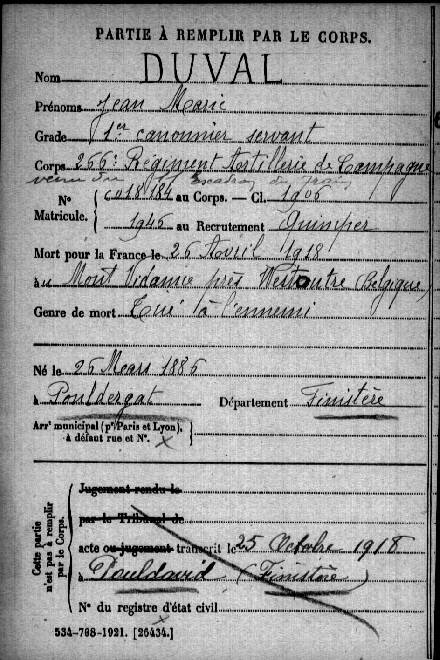 PARTIE À REMPLIR PAR LE CORPS.
Nom DUVAL
Prénoms Jean Marie
Grade 1er canonnier servant
Corps 266e Régiment Artillerie de Campagne
venu du Escadron du train
N° 6018184 au Corps. — Cl. 1906
Matricule. 1945 au Recrutement Quimper
Mort pour la France le 26 Avril 1918
au Mont Vidaigne près Westoutre (Belgique)
Genre de mort Tué à l'ennemi
Né le 26 Mars 1886
à Pouldergat Département Finistère
Arrt municipal (pr Paris et Lyon),
à défaut rue et N°.
Cette partie n'est pas à remplir par le Corps.
Jugement rendu le
par le Tribunal de
acte ou jugement transcrit le 25 Octobre 1918
à Pouldavid (Finistère)
N° du registre d'état civil
534-708-1921. [26434.]